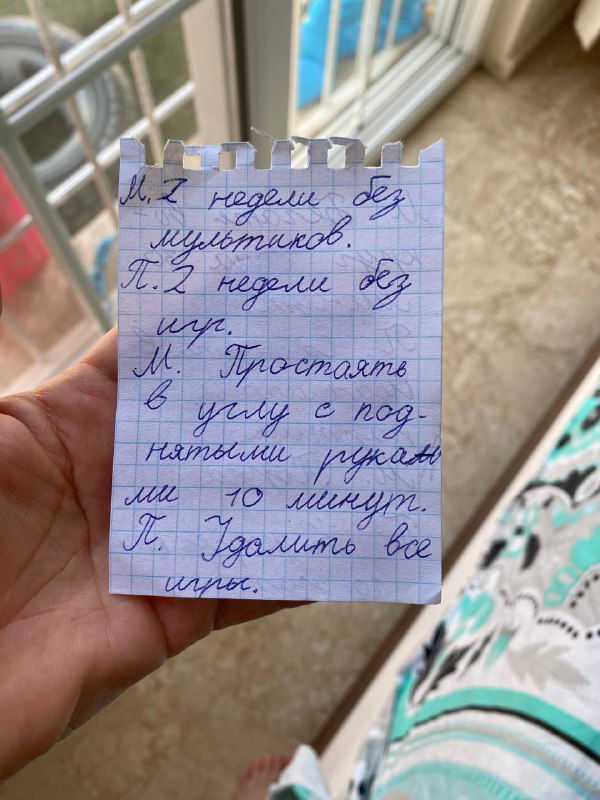 М. 2 недели без
мультиков.
П. 2 недели без
игр.
М. Простаять
в углу с под-
нятыми рука
ми 10 минут.
П. Удалить все
игры.